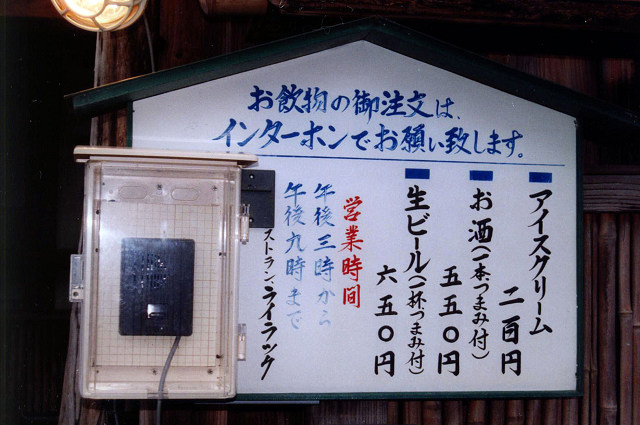 お飲物の御注文は、
インターホンでお願い致します。
アイスクリーム
二百円
お酒(一本つまみ付)
五五〇円
生ビール(一杯つまみ付)
六五〇円
営業時間
午後三時から
午後九時まで
ストラン、ライラック